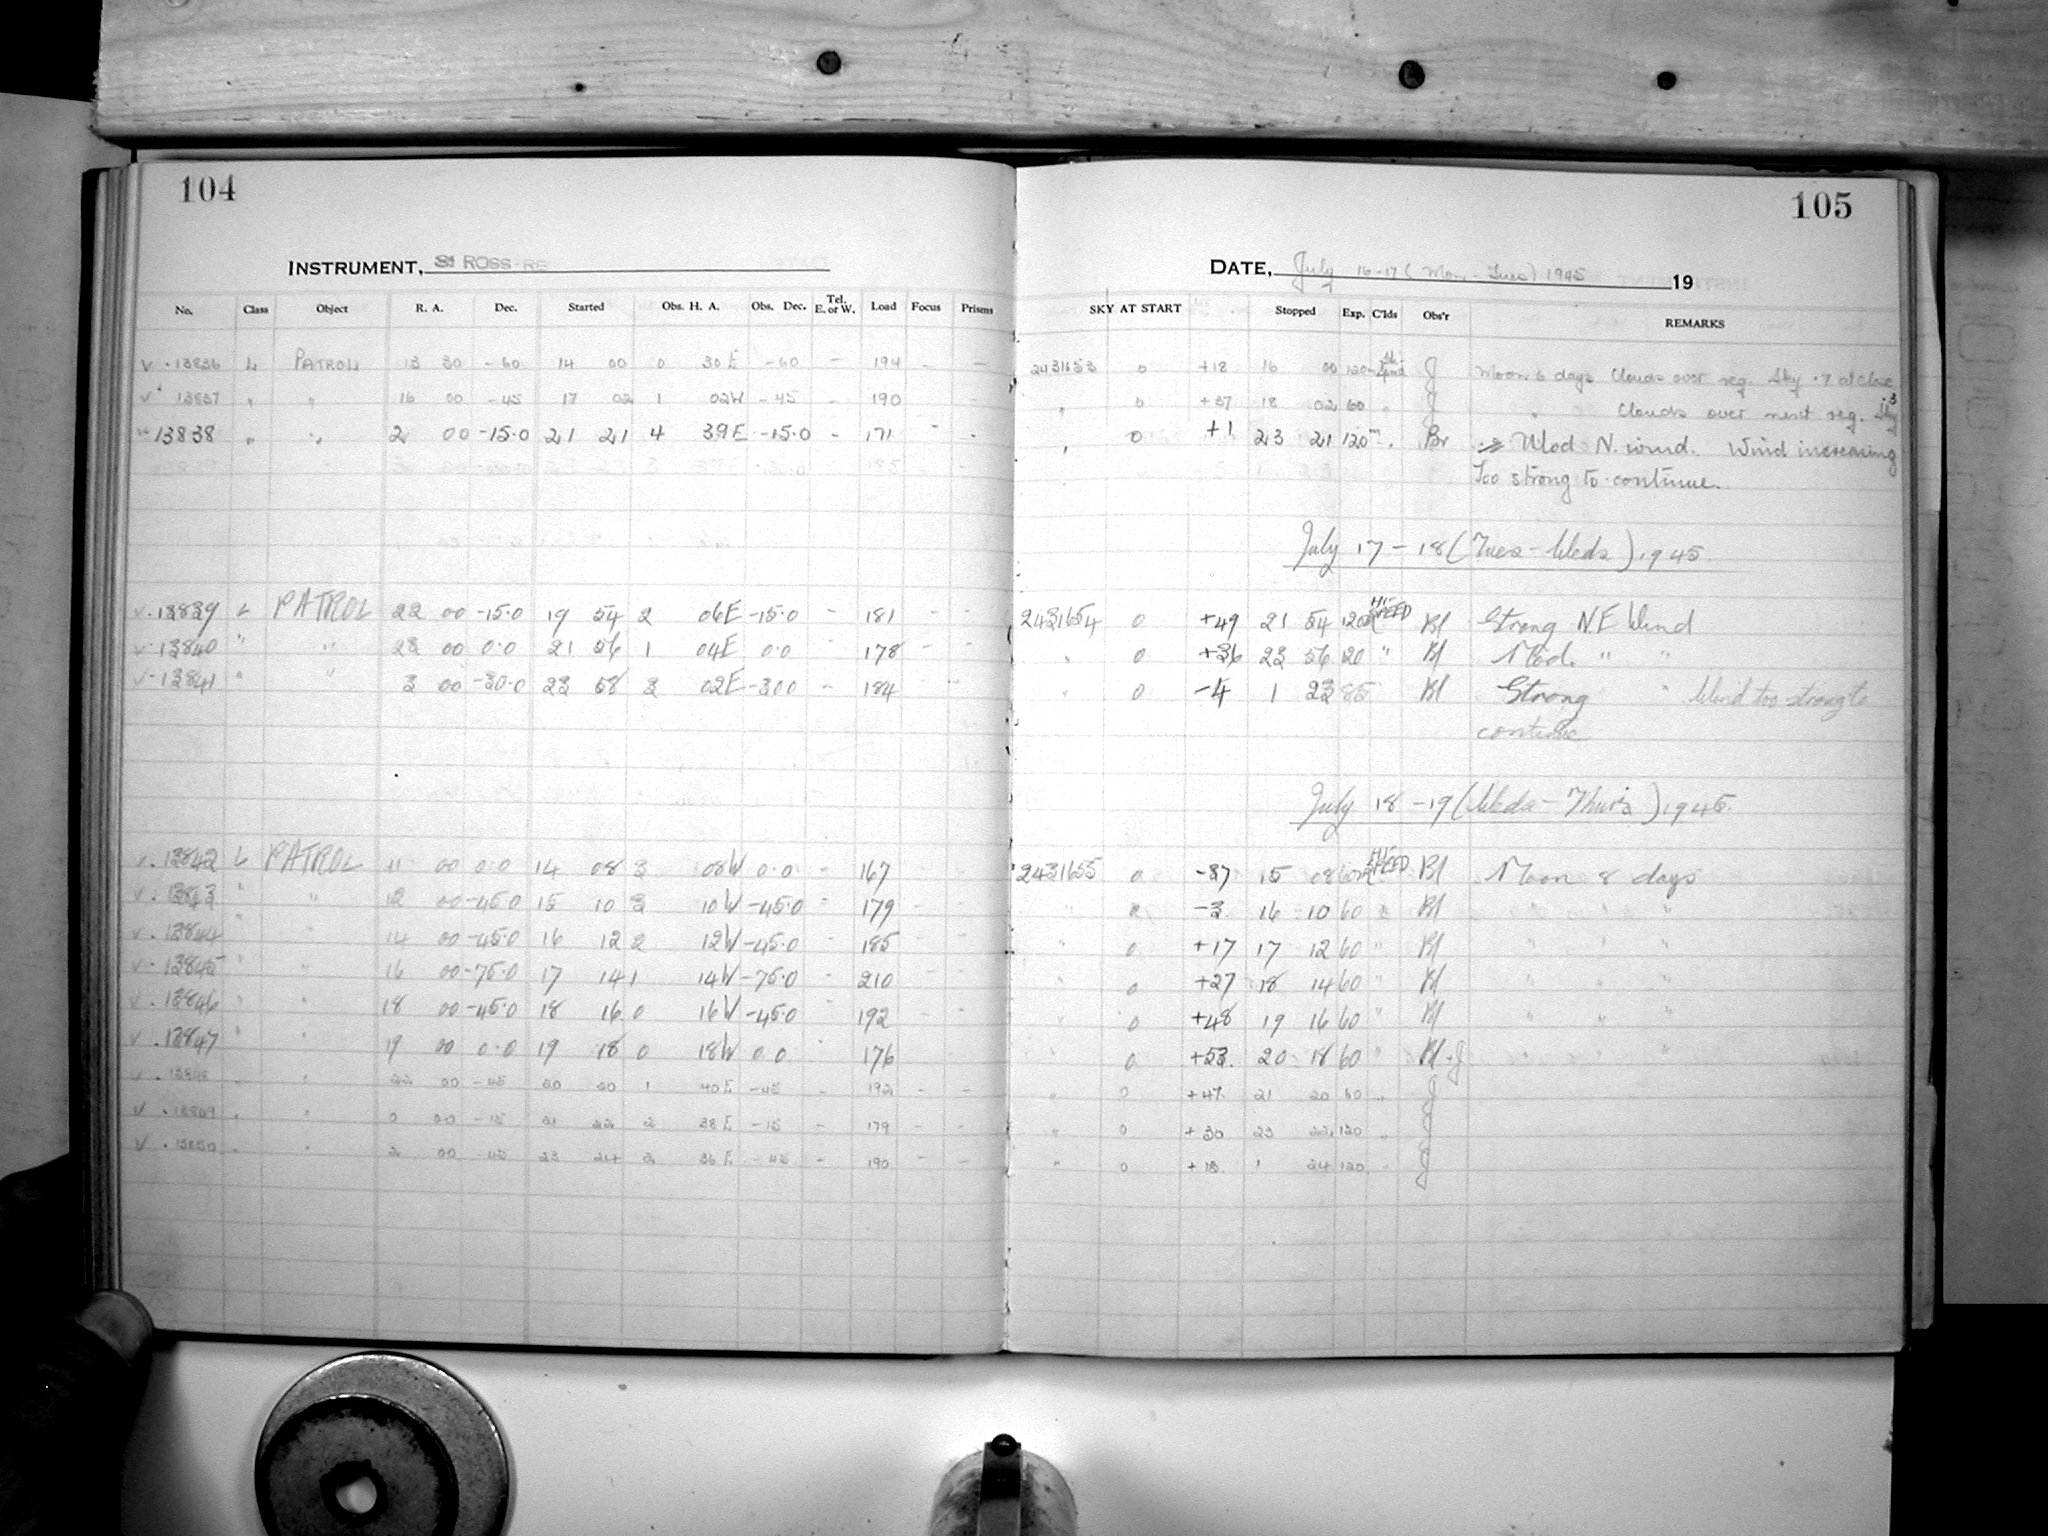 104
INSTRUMENT, ROSS-RE
No. Class Object R. A. Dec. Started Obs. H. A. Obs. Dec. Tel. E. or W. Load Focus Prisms
v . 13836 L PATROL 13 30 -60 14 00 0 30 E -60 - 194 - -
v 13837 " " 16 00 -45 17 02 1 02W -45 - 190 -
13838 " " 2 00 -15.0 21 21 4 39E -15.0 - 171 - -
v . 13839 L PATROL 22 00 -15.0 19 54 2 06E -15.0 - 181 - -
v . 13840 " " 23 00 0.0 21 56 1 04E 0.0 - 178 - -
v - 13841 " " 3 00 -30.0 23 58 3 02E -30.0 - 184 - -
v . 13842 L PATROL 11 00 0.0 14 08 3 08W 0.0 - 167 - -
v . 13843 " " 12 00 -45.0 15 10 3 10W -45.0 - 179 - -
v . 13844 " " 14 00 -45.0 16 12 2 12W -45.0 - 185 - -
v - 13845 " " 16 00 -75.0 17 14 1 14W -75.0 - 210 - -
v . 13846 " " 18 00 -45.0 18 16 0 16W -45.0 - 192 - -
v . 13847 " " 19 00 0.0 19 18 0 18W 0.0 - 176 - -
v . 13848 " " 22 00 -45 20 20 1 40E -45 - 192 - -
v . 13849 " " 0 00 -15 21 22 2 38E -15 - 179 - -
v . 13850 " " 2 00 -45 23 24 2 36E -45 - 190 - -
105
DATE, July 16-17 (Mon - Tues) 1945 19
SKY AT START Stopped Exp. C'lds Obs'r REMARKS
2431653 0 +18 16 00 120m J Moon 6 days Clouds over reg. Sky .7 at close
" 0 +37 18 02 60 " J " Clouds over next reg. Sky .3
" 0 +1 23 21 120m " Br Mod N. wind. Wind increasing
Too strong to continue.
July 17 - 18 (Tues - Weds) 1945.
2431654 0 +49 21 54 120m HI-SPEED Bl Strong N.E Wind
" 0 +36 23 56 120 " Bl Mod. " "
" 0 -4 1 23 85 Bl Strong " Wind too strong to
continue
July 18 - 19 (Weds - Thurs) 1945.
2431655 0 -37 15 08 60m HI-SPEED Bl Moon 8 days
" -3 16 10 60 " Bl " " "
" 0 +17 17 12 60 " Bl " " "
" 0 +27 18 14 60 " Bl " " "
" 0 +48 19 16 60 " Bl " " "
" 0 +53. 20 18 60 " Bl - J " " "
" 0 +47 21 20 60 " J
" 0 +30 23 22 120 " J
" 0 +13 1 24 120 " J